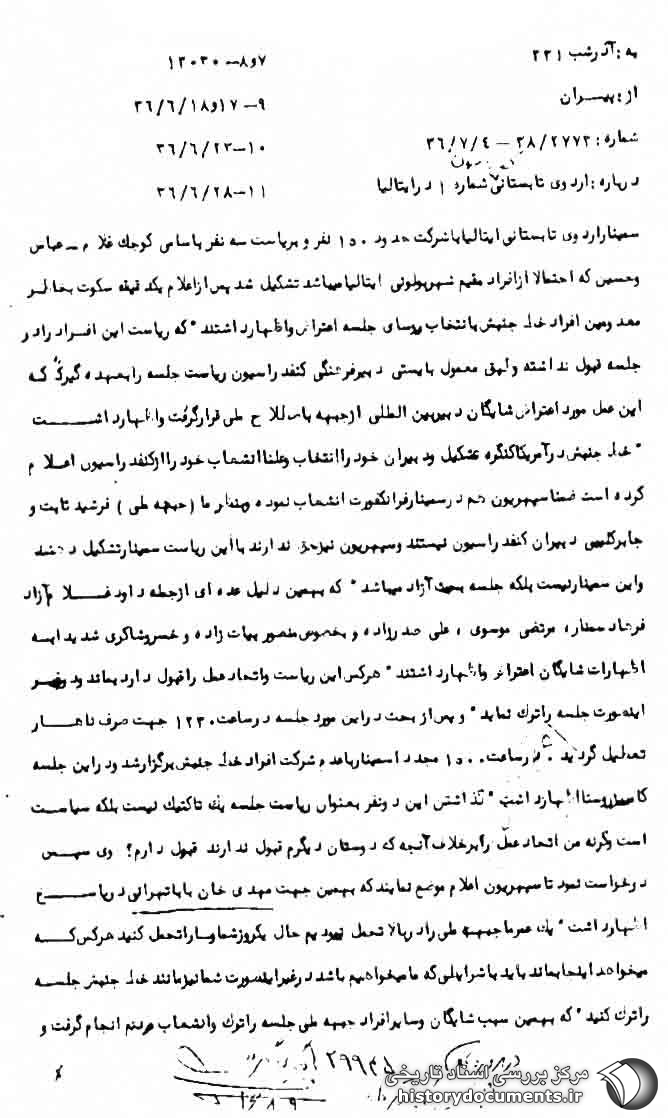 به : آذرشب ۲۲۱
۷و۸-۱۲۰۳۰
از : پیسران
۹- ۱۷و۳۶/۶/۱۸
شماره : ۲۸/۲۷۷۲ - ۳۶/۷/۴
۱۰-۳۶/۶/۲۳
درباره : اردوی تابستانی شماره ۱ در ایتالیا
۱۱-۳۶/۶/۲۸
سمینار اردوی تابستانی ایتالیا با شرکت حدود ۱۵۰ نفر و بریاست سه نفر باسامی کوچک غلام - عباس
وحسین که احتمالا از افراد مقیم شهر بولونی ایتالیا میباشد تشکیل شد پس از اعلام یکدقیقه سکوت بخاطر
معدومین افراد خط جنبش با انتخاب روسای جلسه اعتراض واظهار داشتند " که ریاست این افراد را در
جلسه قبول نداشته وطبق معمول بایستی دبیر فرهنگی کنفدراسیون ریاست جلسه را بعهده گیرد که
این عمل مورد اعتراض شایگان دبیر بین المللی از جبهه باصطلاح ملی قرار گرفت واظهار داشت
" خط جنبش در آمریکا کنگره تشکیل ودبیران خود را انتخاب وعلنا انشعاب خود را از کنفدراسیون اعلام
کرده است ضمنا سپهریون هم در سمینار فرانکفورت انشعاب نموده وبنظر ما ( جبهه ملی ) فرشید ثابت و
جابر کلیبی دبیران کنفدراسیون نیستند وسپهریون نیز حق ندارند با این ریاست سمینار تشکیل دهند
واین سمینار نیست بلکه جلسه بحث آزاد میباشد " که بهمین دلیل عده ای از جمله داود غلام آزاد
فرهاد سمنار ، مرتضی موسوی ، علی صدرزاده و بخصوص منصور بیات زاده و خسرو شاکری شدیدا به
اظهارات شایگان اعتراض واظهار داشتند " هرکس این ریاست واتحاد عمل را قبول دارد بماند ودر غیر
اینصورت جلسه را ترک نماید " و پس از بحث در این مورد جلسه در ساعت ۱۲۳۰ جهت صرف ناهار
تعطیل گردید . در ساعت ۱۵۰۰ مجددا سمینار با عدم شرکت افراد خط جنبش برگزار شد و در این جلسه
اظهار داشت " گذاشتن این دو نفر بعنوان ریاست جلسه یک تاکتیک نیست بلکه سیاست
است وگرنه من اتحاد عمل را برخلاف آنچه که دوستان دیگرم قبول ندارند قبول دارم ؟ وی سپس
درخواست نمود تا سپهریون اعلام موضع نمایند که بهمین جهت مهدی خان باباتهرانی در پاسخ
اظهار داشت " یک عمر ما جبهه ملی را در بالا تحمل نمودیم حال یکروز شما ما را تحمل کنید هرکس که
میخواهد اینجا بماند باید با شرایطی که ما میخواهیم باشد در غیر اینصورت شما نیز مانند خط جنبش جلسه
را ترک کنید " که بهمین سبب شایگان وسایر افراد جبهه ملی جلسه را ترک وانشعاب مردم انجام گرفت و
۲۹۹۳۵
مرکز بررسی اسناد تاریخی
historydocuments.ir